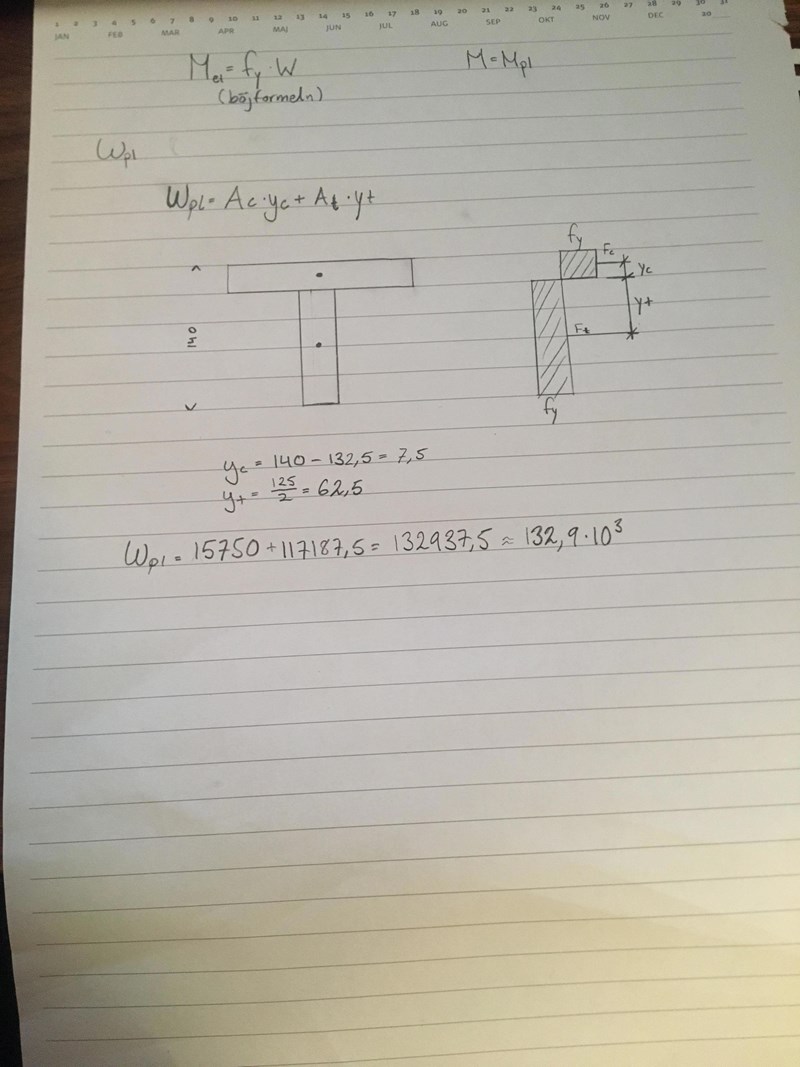 1 2 3 4 5 6 7 8 9 10 11 12 13 14 15 16 17 18 19 20 21 22 23 24 25 26 27 28 29 30 31
JAN FEB MAR APR MAJ JUN JUL AUG SEP OKT NOV DEC 20
Mel = fy · W M = Mpl
(böjformeln)
Wpl
Wpl = Ac · yc + At · yt
fy
Fc
yc
yt
140
Ft
fy
yc = 140 - 132,5 = 7,5
yt = 125/2 = 62,5
Wpl = 15750 + 117187,5 = 132937,5 ≈ 132,9 · 10³